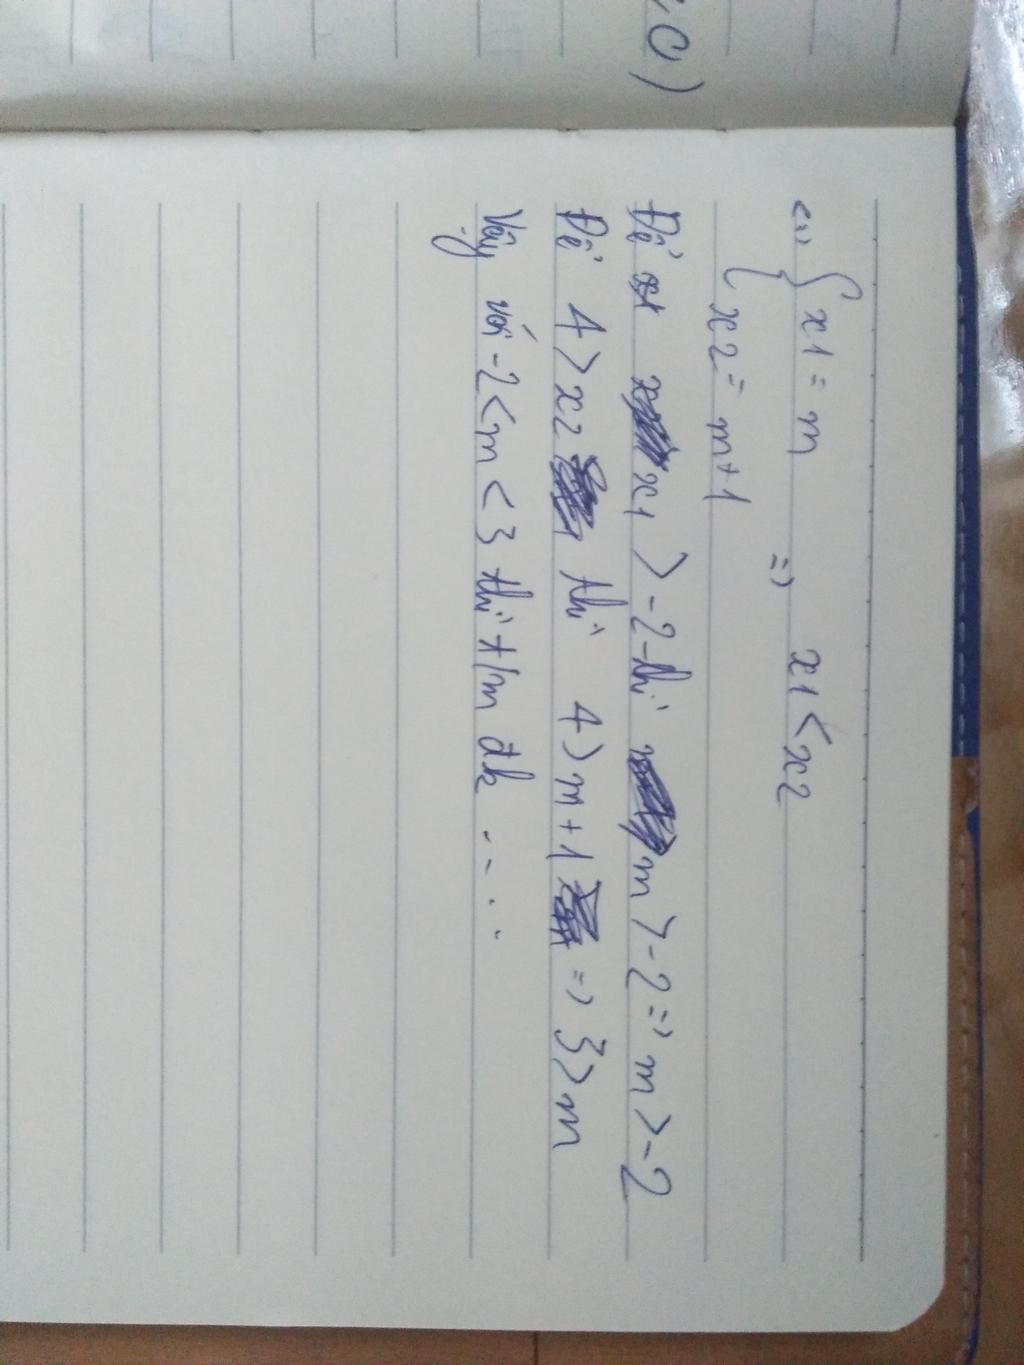 0)
<=> { x1 = m
{ x2 = m+1
=> x1 < x2
Để x1 > -2 thì m > -2 => m > -2
Để 4 > x2 thì 4 > m+1 => 3 > m
Vậy với -2 < m < 3 thì t/m đk ....